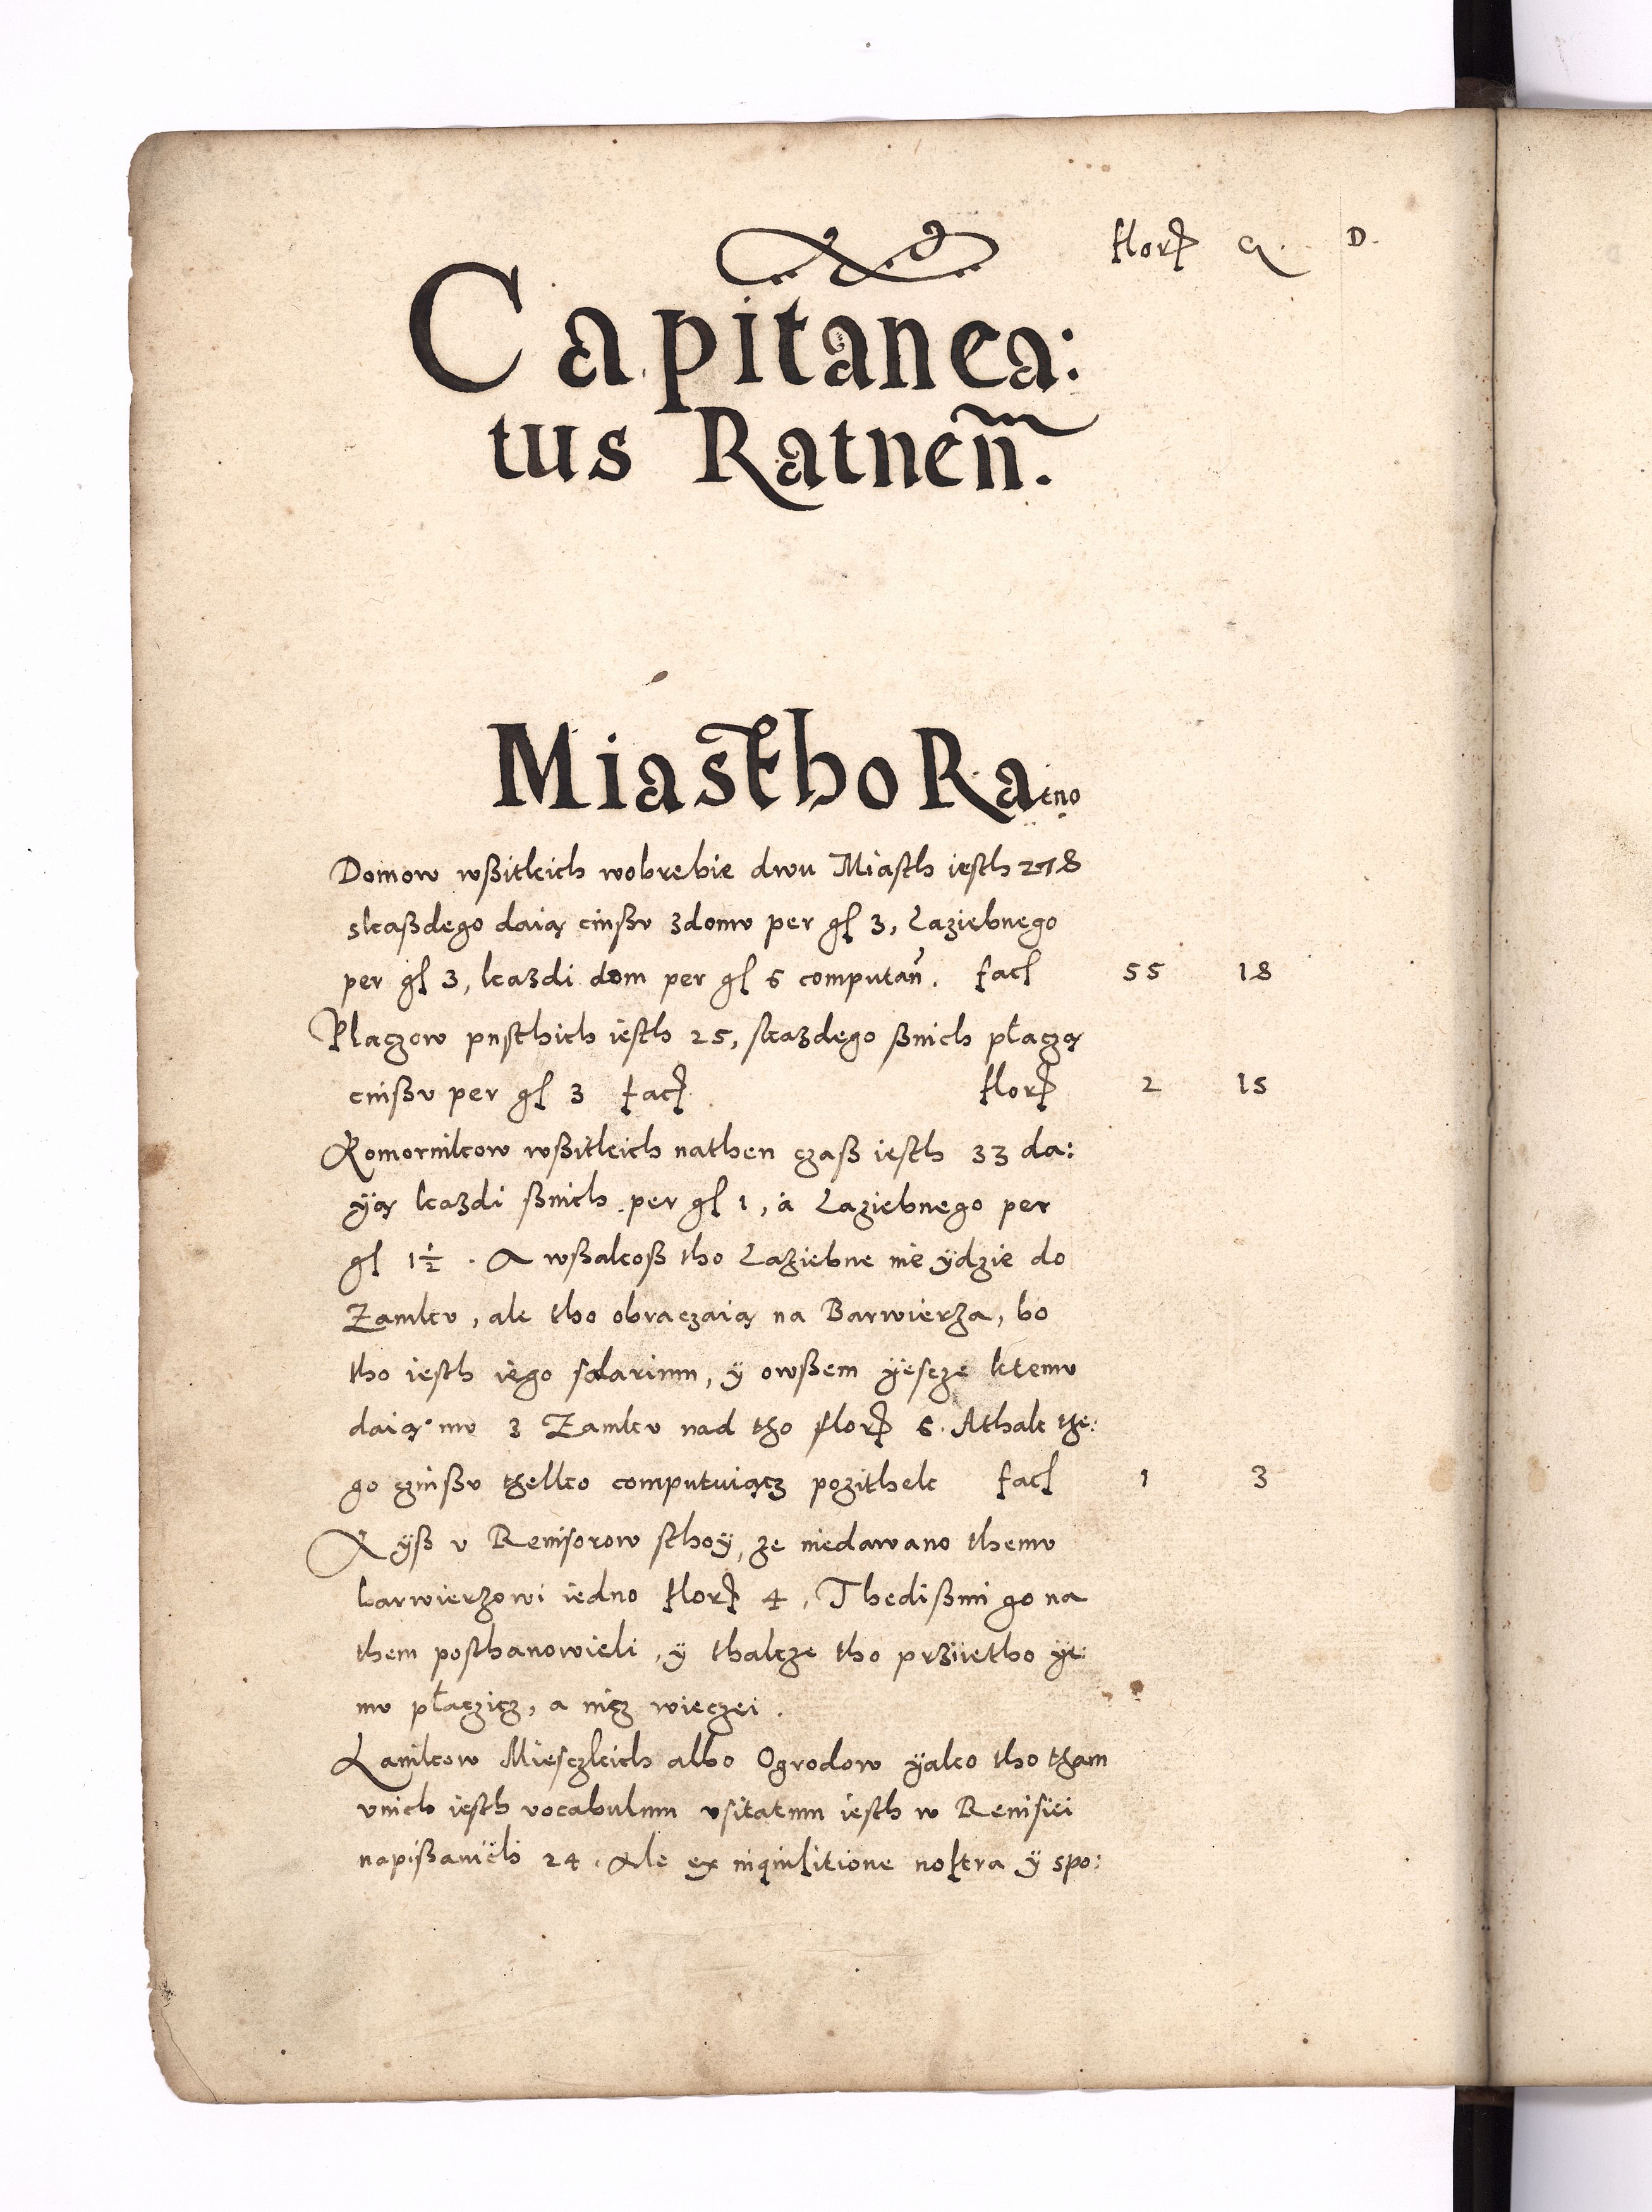 Florꝭ G. D.
Capitanea:
tus Ratneñ.
Miastho Ratno
Domow wßitkich wobrebie dwu Miasth iesth 278
skaßdego daią cinßu zdomu per gſ 3, Łaziebnego
per gſ 3, każdi dom per gſ 6 computañ. facſ 55 18
Placzow pusthich iesth 25, skazdego ßnich płaczą
cinßu per gſ 3 facꝭ Florꝭ 2 15
Komornikow wßitkich nathen czaß iesth 33 da:
yą kazdi ßnich per gſ 1, a Łaziebnego per
gſ 1½. A wßakoß tho Łaziebne nie ydzie do
Zamku, ale tho obraczaią na Barwierza, bo
tho iesth iego solarium, ÿ owßem ÿescze ktemu
daią mu z Zamku nad tho florꝭ 6. Athak the:
go czinßu thelko computuiącz pozithek facſ 1 3
A yß v Reuisorow sthoÿ, ze niedawano themu
barwierzowi iedno florꝭ 4, Thedißmi go na
them posthanowieli, ÿ thakze tho prziietho ye:
mu płaczicz, a nicz wieczei.
Łanikow Miesczkich albo Ogrodow ÿako tho tham
vnich iesth vocabulum vsitatum iesth w Reuisiei
napißanich 24. Ale ex inquisitione nostra ÿ spo: